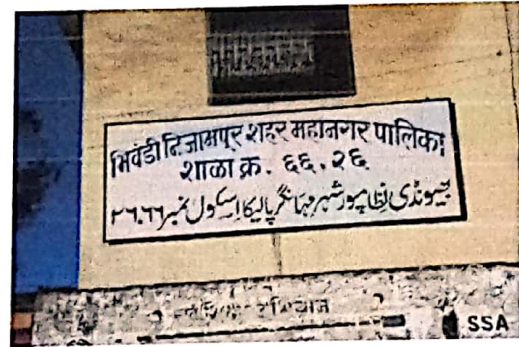 भिवंडी निजामपूर शहर महानगर पालिका
शाळा क्र. ६६.२६
بھیونڈی نظامپور شہر مہانگر پالیکا اسکول نمبر ۲۶.۶۶
SSA